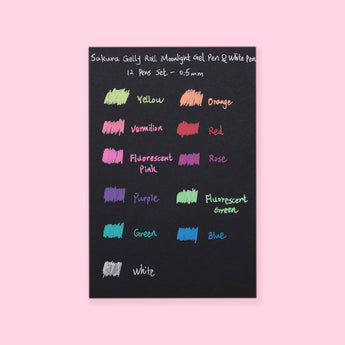 Sakura Gelly Roll Moonlight Gel Pen & White Pen
12 Pens Set - 0.5mm
Yellow Orange
Vermilion Red
Fluorescent Pink Rose
Purple Fluorescent Green
Green Blue
White